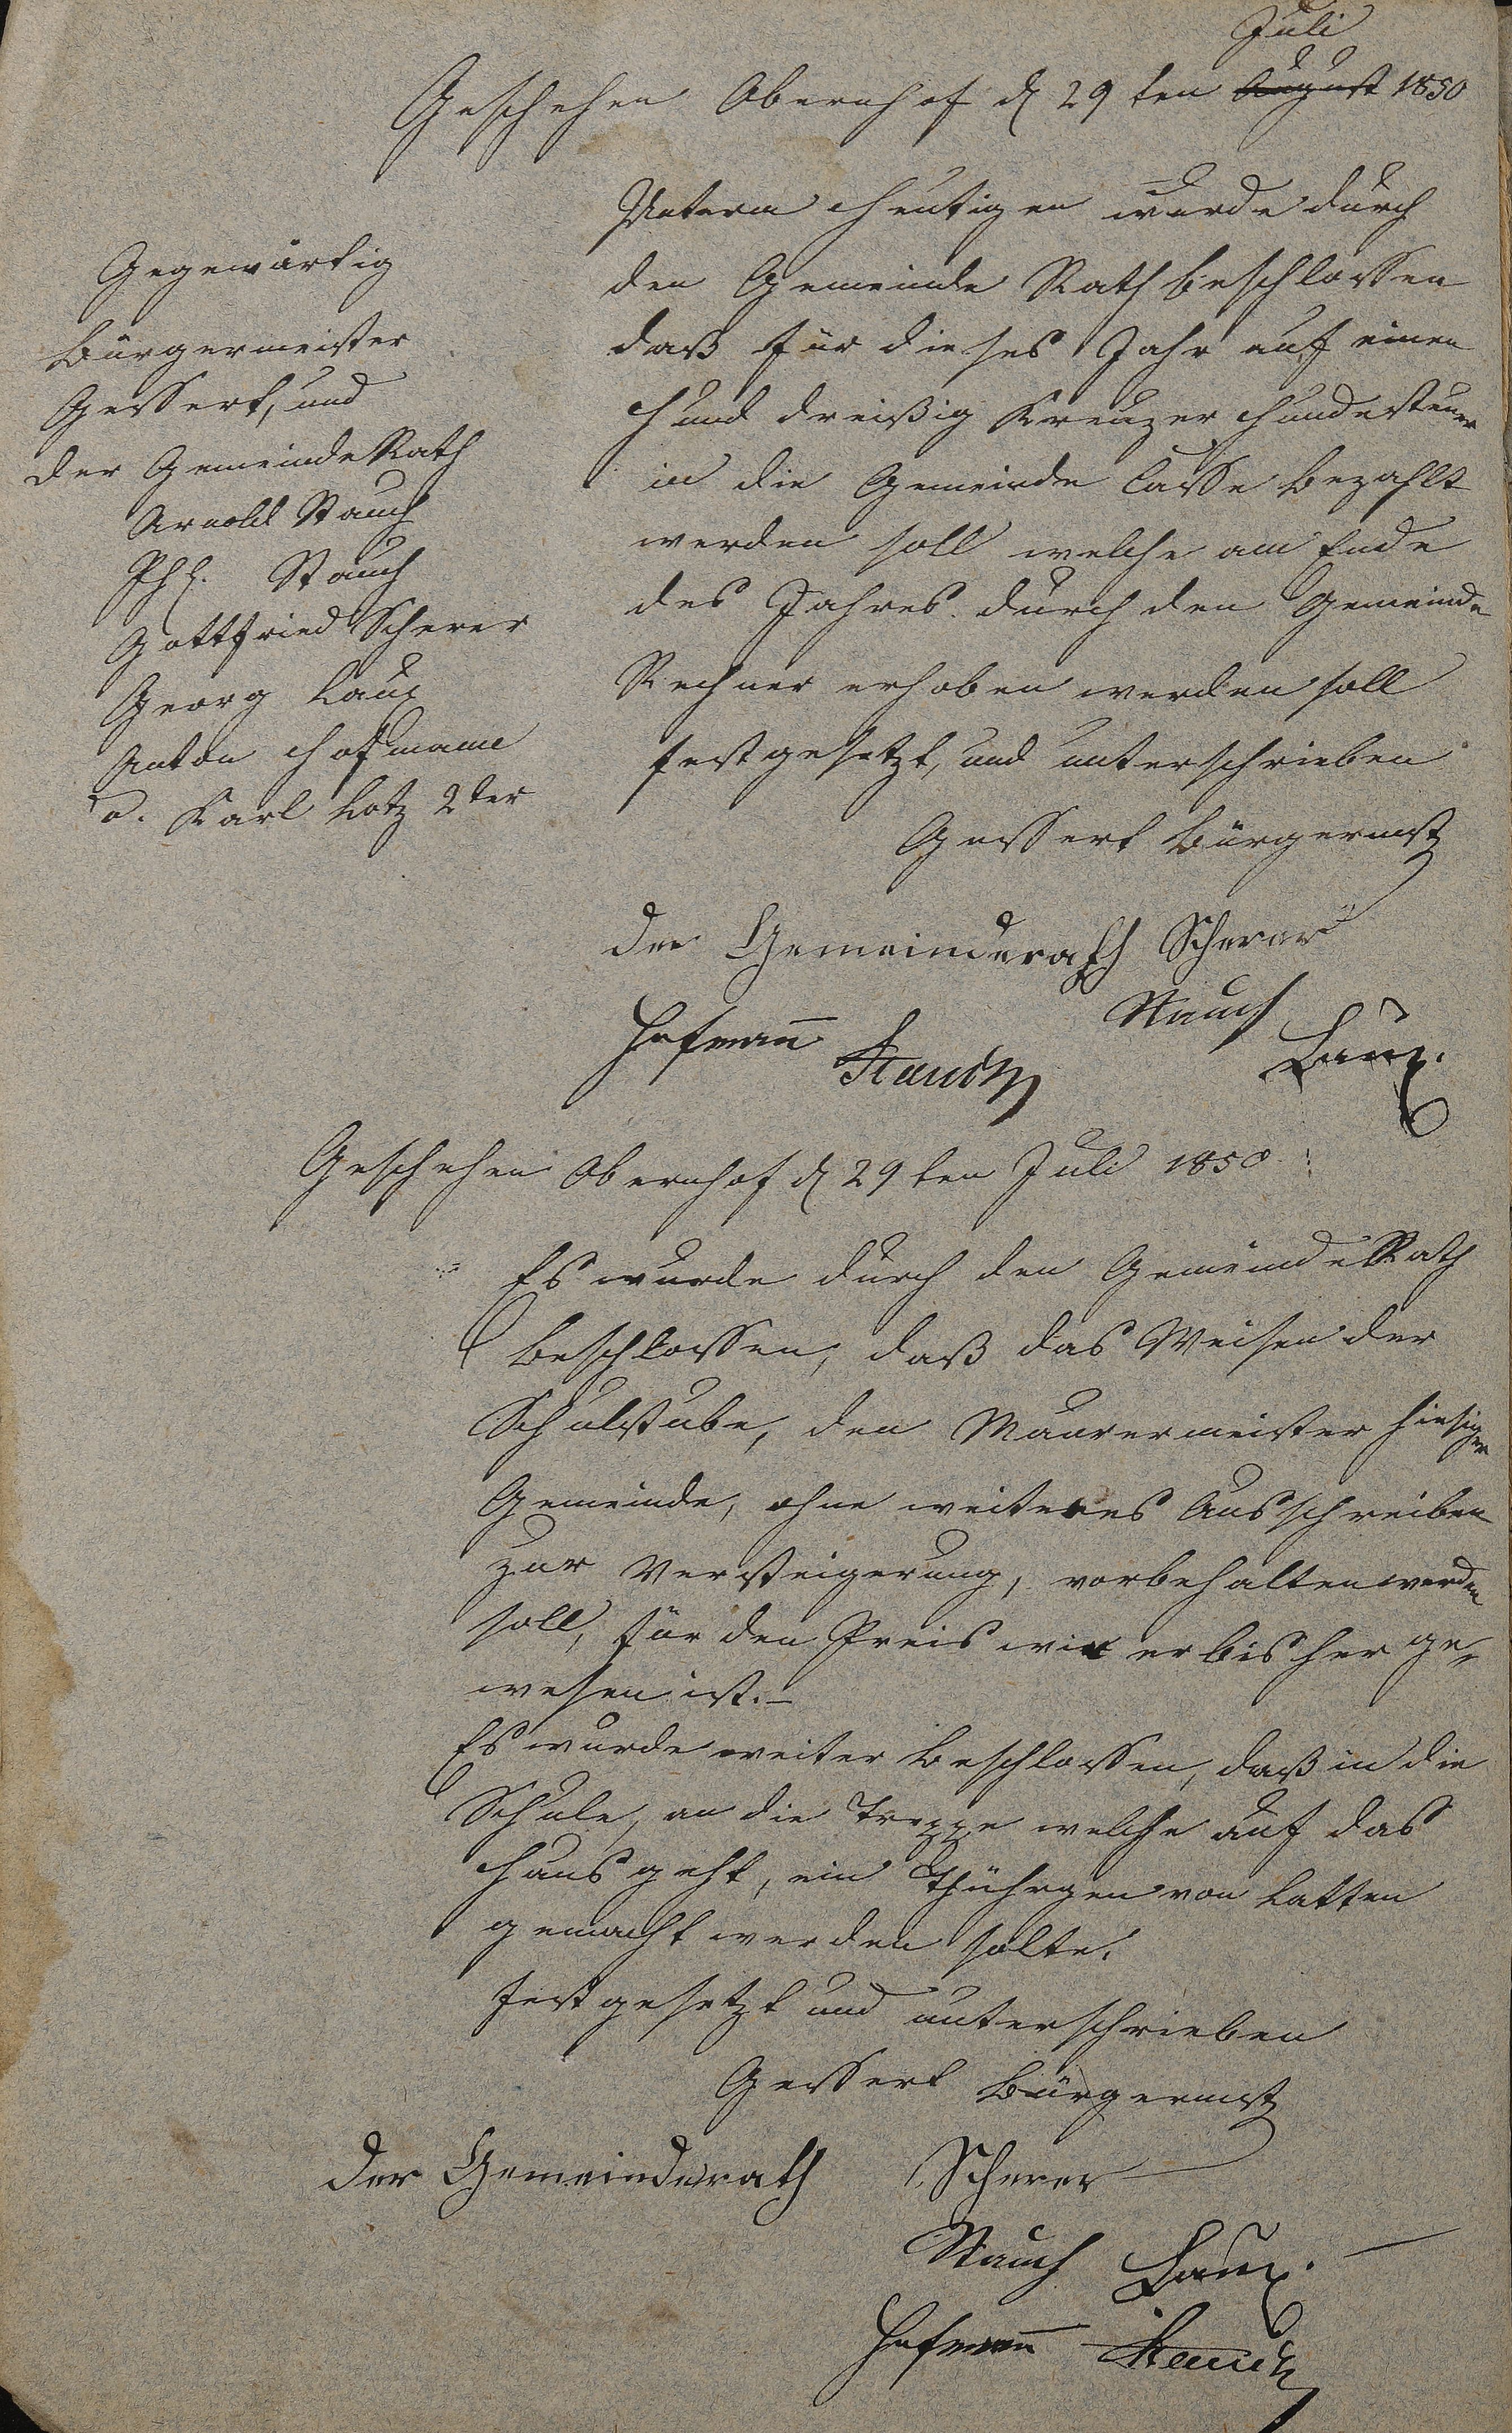 Juli
Geschehen Obernhof d 29 ten August 1850
Gegenwärtig
Bürgermeister
Gessert, und
der Gemeinde Rath
Arnold Stauch
Phl. Stauch
Gottfried Scherer
Georg Laux
Anton Hofmann
u. Karl Lotz 2ter
Unterm heutigen wurde durch
den Gemeinde Rath beschlossen
daß für dieses Jahr auf einen
Hund dreißig Kreuzer Hundesteuer
in die Gemeinde Casse bezahlt
werden soll welche am Ende
des Jahres durch den Gemeinde
Rechner erhoben werden soll
festgesetzt, und unterschrieben
Gessert Bürgermst
der Gemeinderath Scherer
Stauch
Hofmann Stauch Laux.
Geschehen Obernhof d 29 ten Juli 1850
Es wurde durch den Gemeinde Rath
beschlossen, daß das Weisen der
Schulstube, den Maurermeister hiesiger
Gemeinde, ohne weiteres Ausschreiben
zur Versteigerung, vorbehalten werden
soll, für den Preis wie er bisher ge-
wesen ist. -
Es wurde weiter beschlossen, daß in die
Schule, an die Treppe welche auf das
Haus geht, ein Thührgen von Latten
gemacht werden solte.
festgesetzt und unterschrieben
Gessert Bürgermst
der Gemeinderath Scherer
Stauch Laux.
Hofmann Stauch